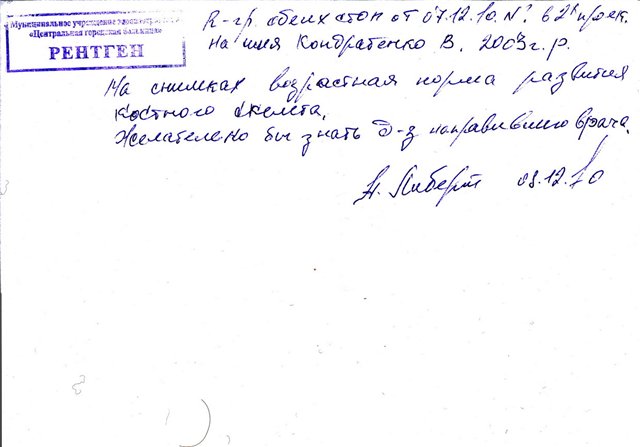 Муниципальное учреждение здравоохранения
«Центральная городская больница»
РЕНТГЕН
R-гр. обеих стоп от 07.12.10. №: в 2х проек.
На имя Кондратенко В. 2003 г. р.
На снимках возрастная норма развития
костного скелета.
Желателено бы знать Д-з направившего врача.
Либерт 09.12.10